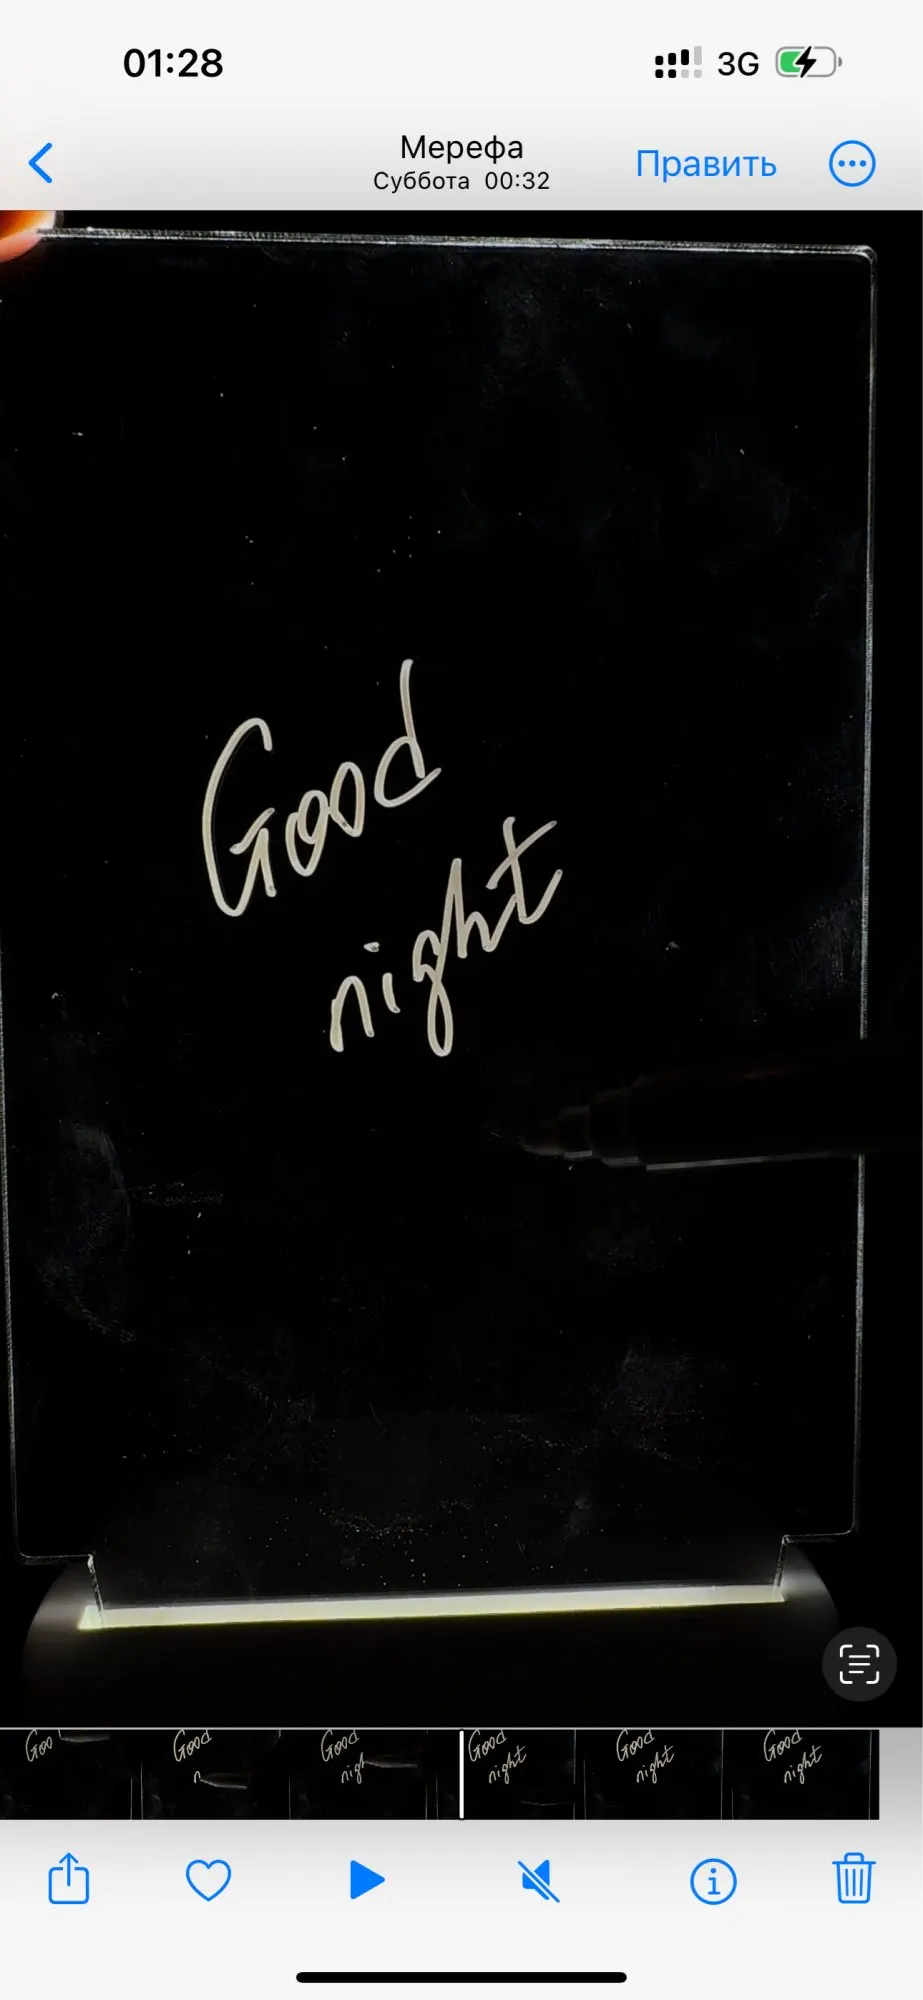 01:28
3G
Мерефа
Суббота 00:32
Править
Good
night
Goo
Good
n
Good
nigh
Good
night
Good
night
Good
night